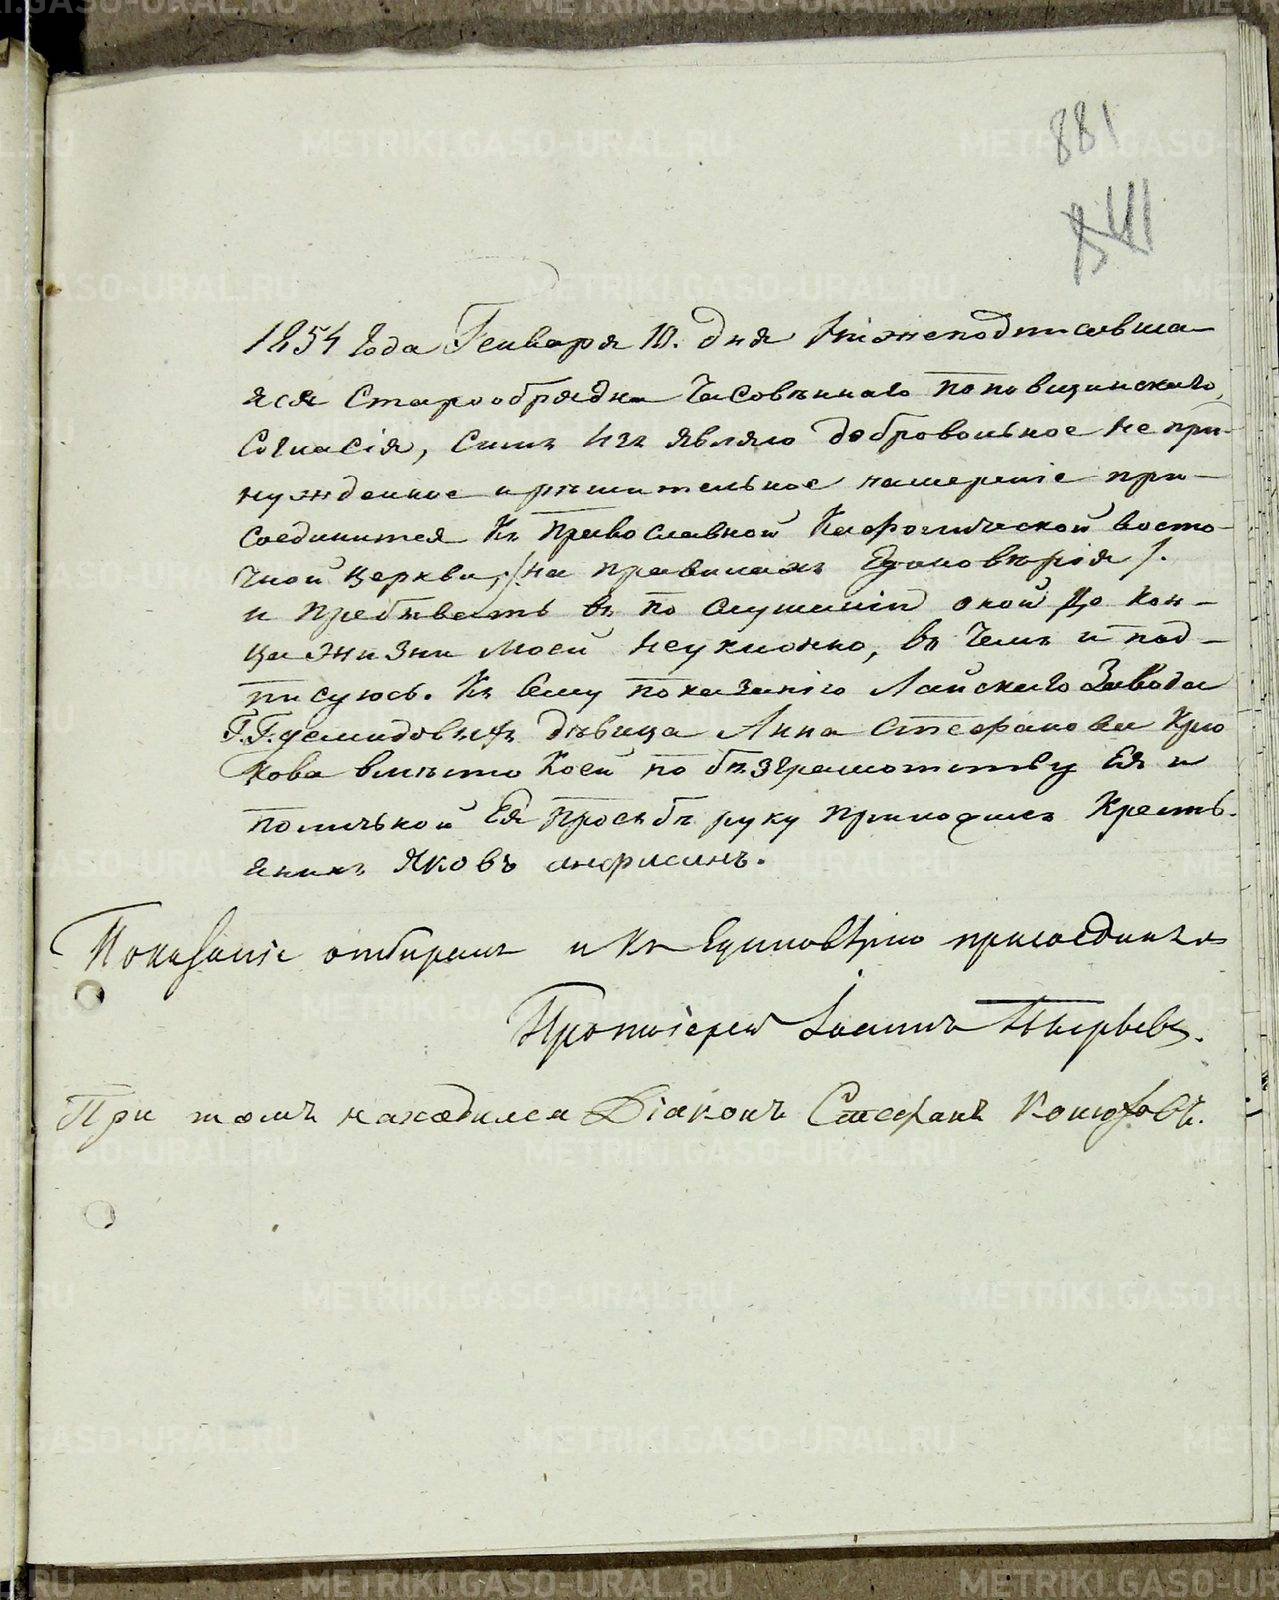 881
1854 Года Генваря 10. дня Нижеподписавша-
яся Старообрядка Часовеннаго поповщинскаго
Согласія, Симъ изъявляю добровольное не при-
нужденное и решительное намереніе при-
соединится Къ Православной Кафолической восто-
чной церкви, /на правилахъ Единоверія/.
и пребывать въ по слушаніи оной До Кон-
ца жизни Моей неуклонно, въ Чемъ и под-
писуюсь. Къ Сему показанію Лайскаго Завода
Г.Г. Демидовыхъ девица Анна Стефанова Крю
кова вместо Коей по безграмотству Ея и
поличьной Ея Прозьбе руку приложилъ Кресть-
янинъ Яковъ анфисинъ.
Показаніе отбиралъ и Къ Единоверію присоединилъ
Протоіерей Іоаннъ Пырьевъ.
При томъ находился Діаконъ Стефанъ Конюховъ.
METRIKI.GASO-URAL.RU